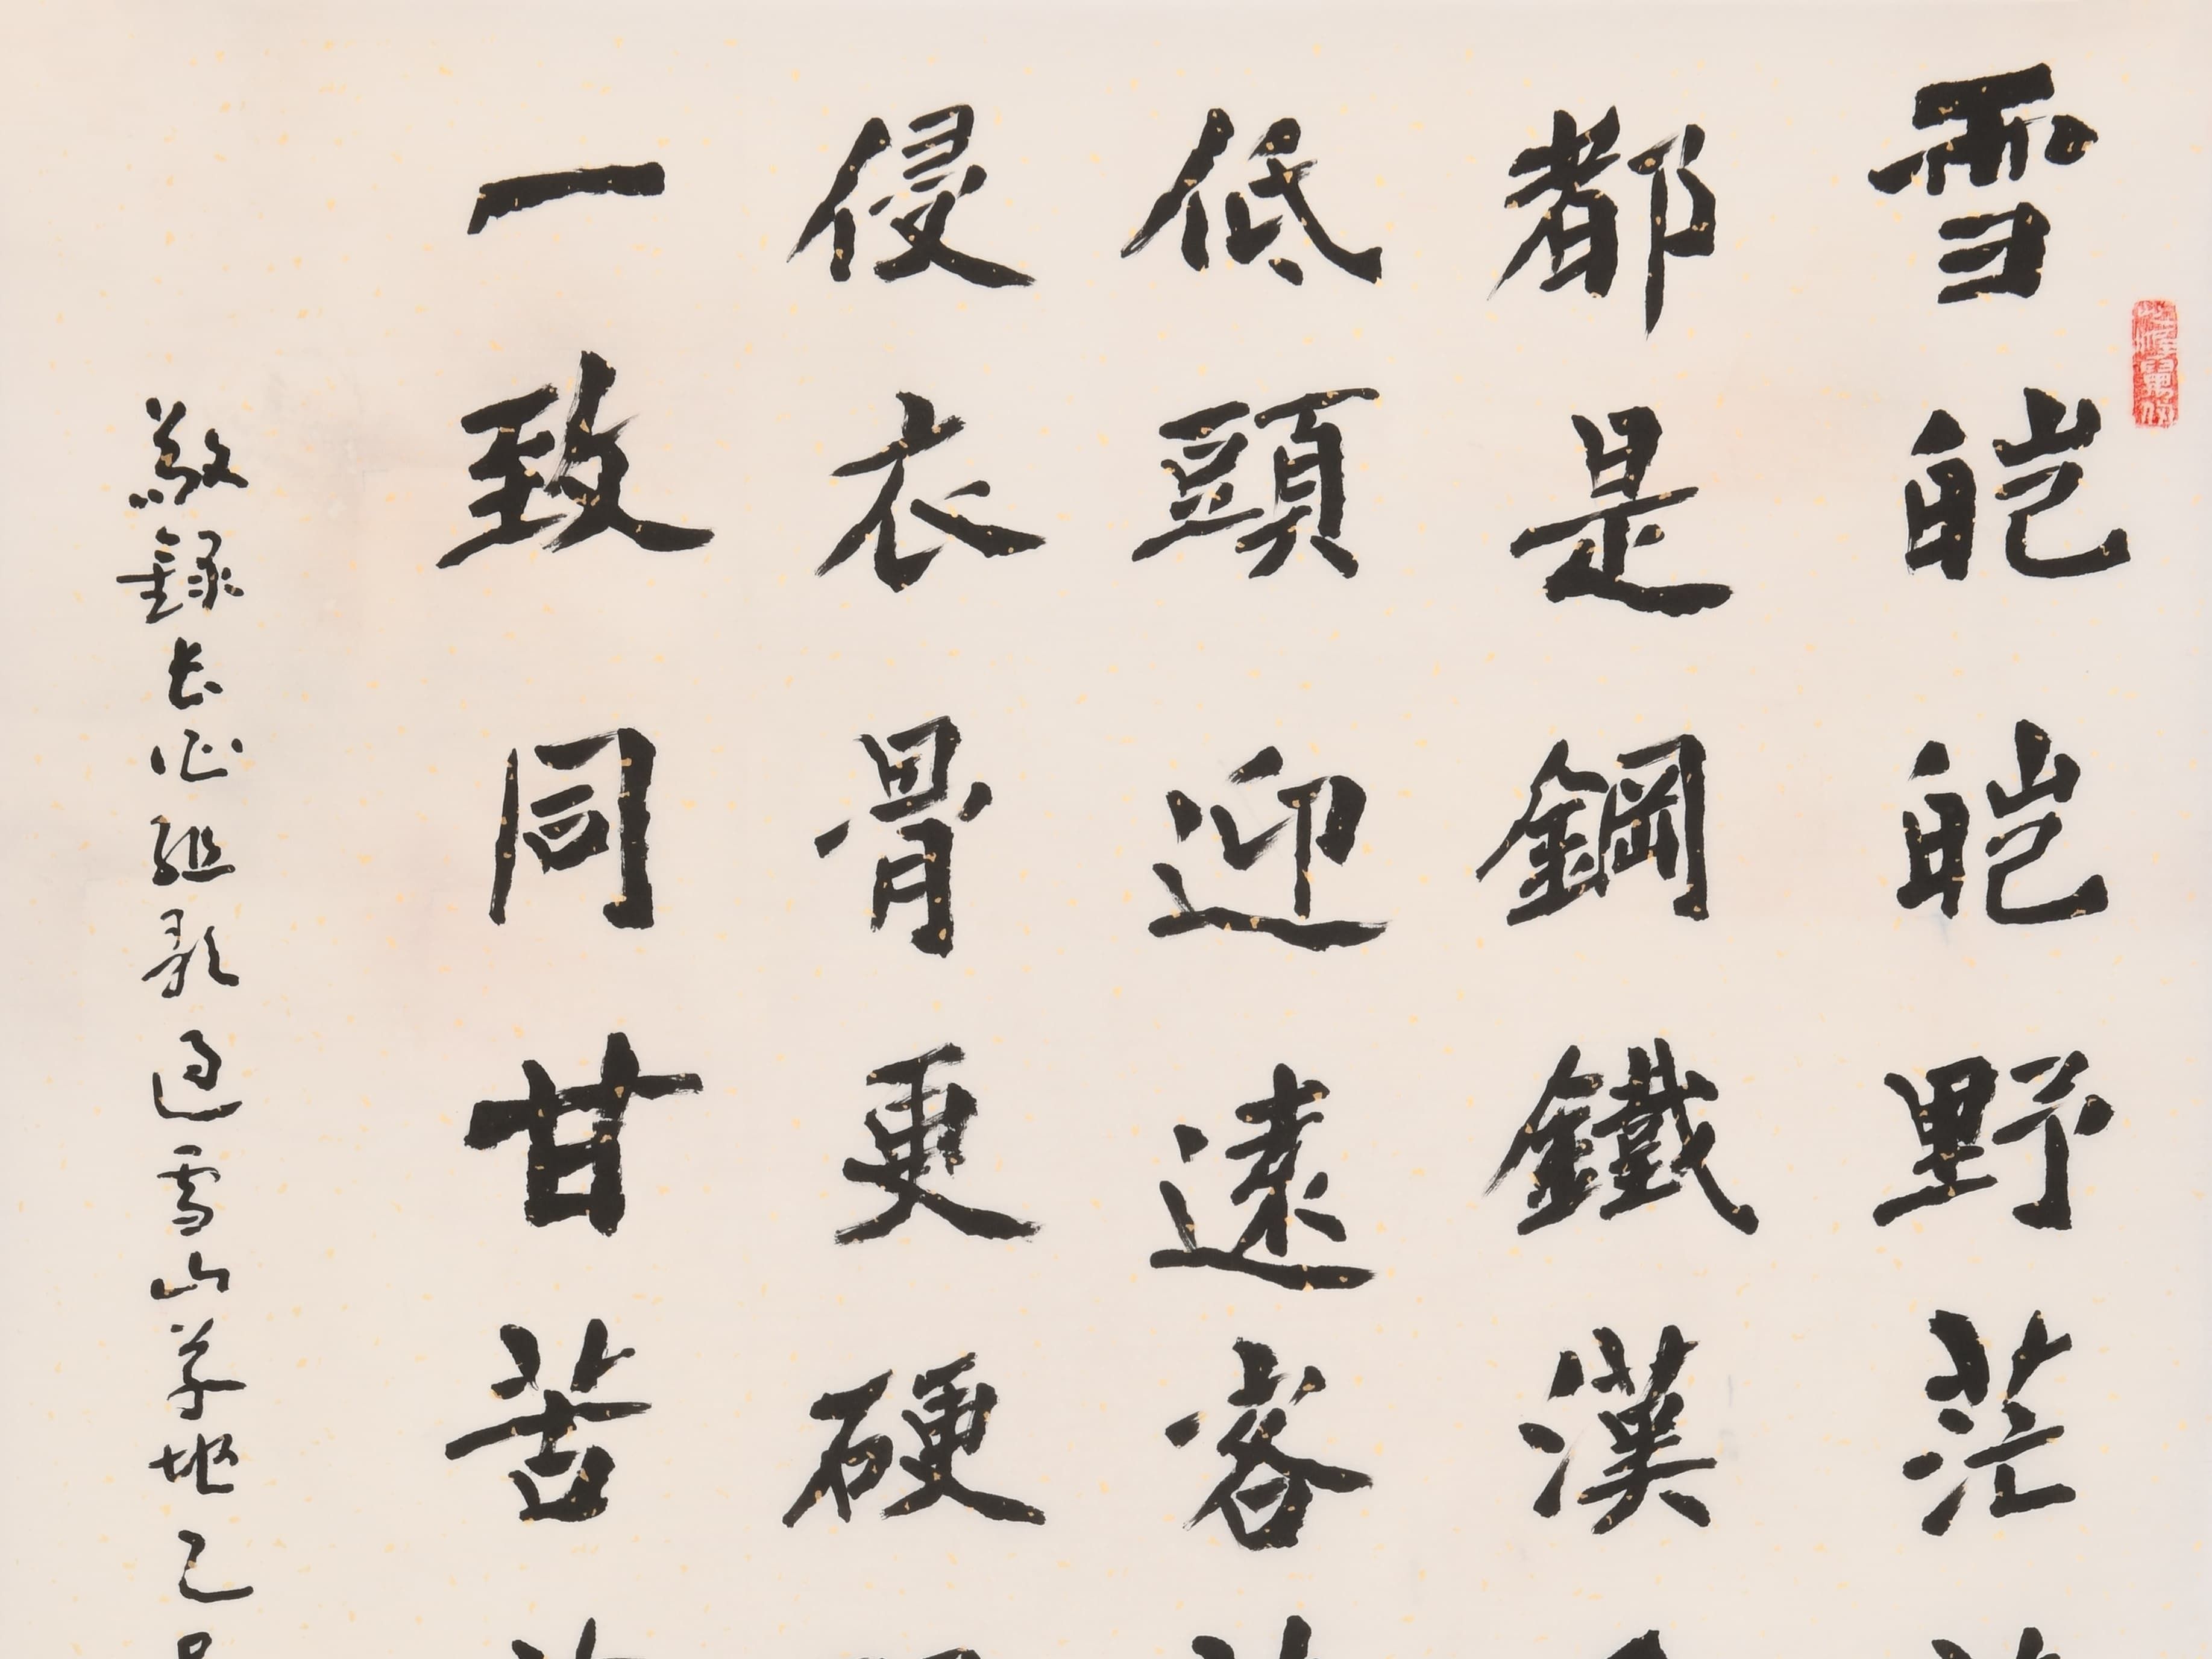 雪皑皑野茫
都是鋼鐵漢
低頭迎遠客
侵衣骨更硬
一致同甘苦
敬録长征組歌过雪山草地乙